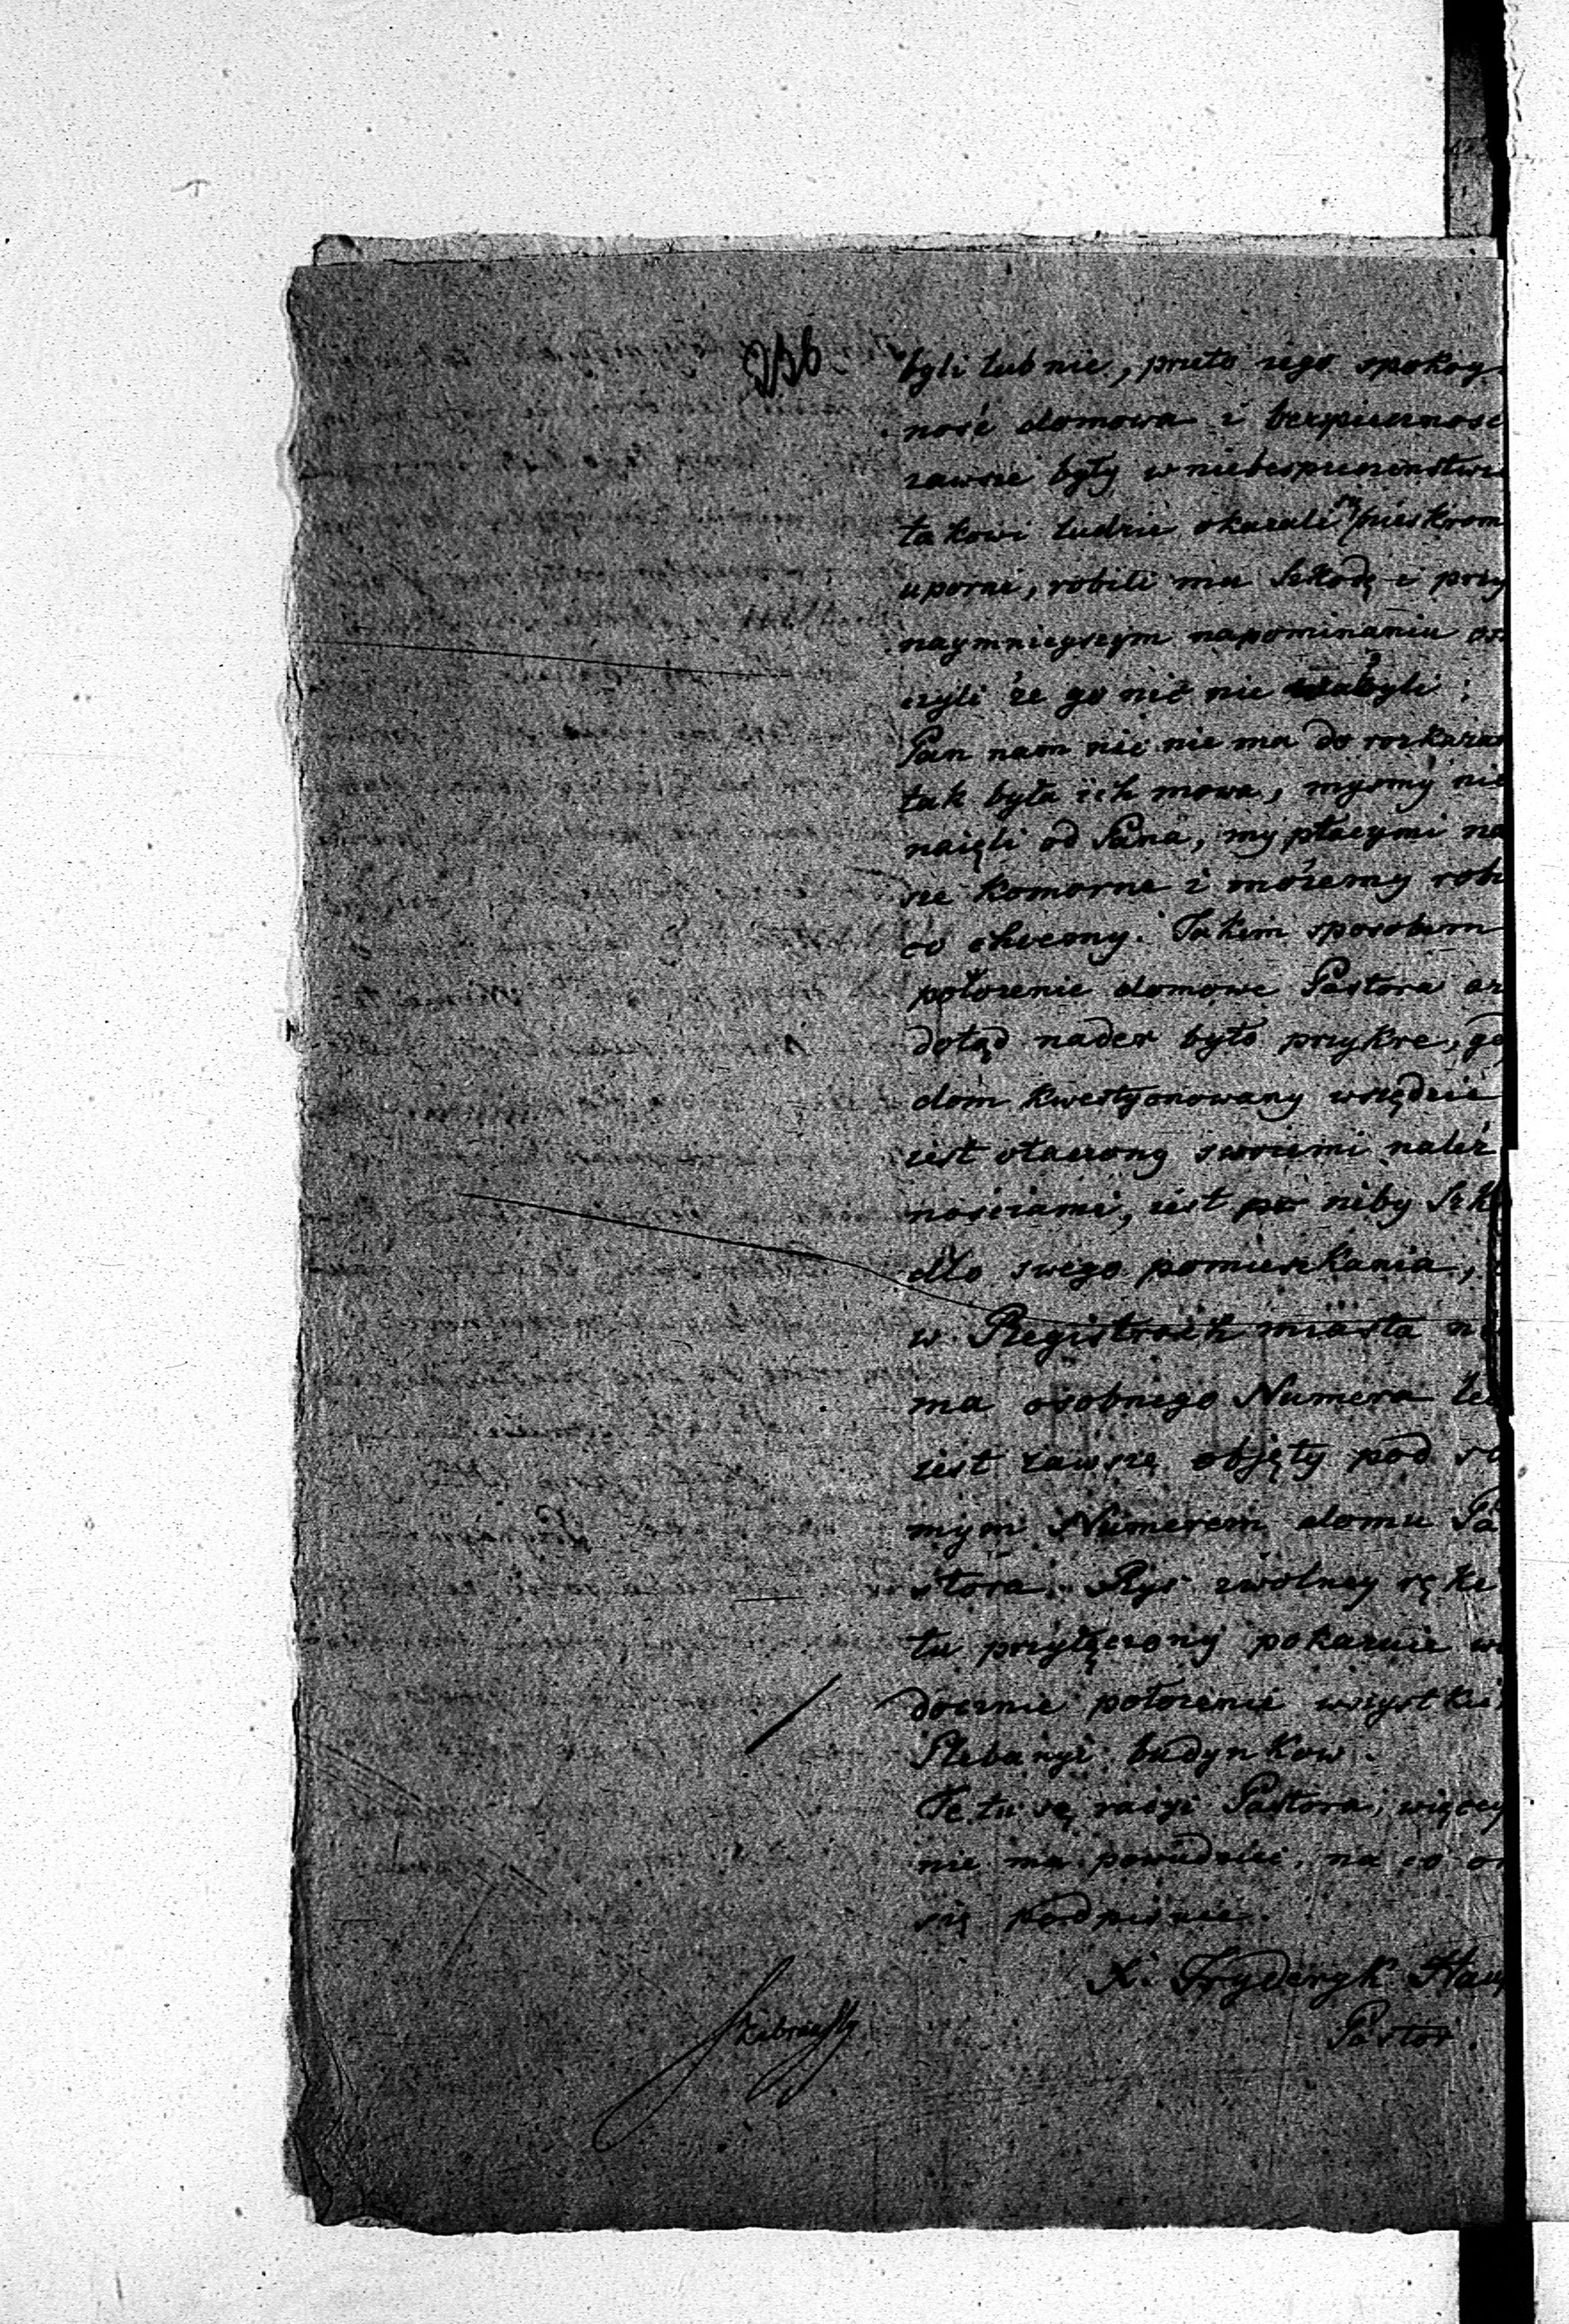 256
byli lub nie, przeto iego spokoy-
ność domowa i bezpieczność
zawsze były w niebespieczenstwie
takowi ludzie okazali się nieskrom
uporni, robili mu Szkodę i przy
naymnieyszym napominaniu oz
czyli że go nic nie byli;
Pan nam nic nie ma do rozkaza
tak była ich mowa, mysmy nie
naięli od Pana, my płacymi na
sze komorne i możemy robi
co chcemy. Takim sposobem
położenie domowe Pastora az
dotąd nader było przykre, gd
dom kwestyonowany wszędzie
iest otaczony swoiemi należ
nościami, iest niby Sk
dło swego pomieszkania,
w Registrach miasta ni
ma osobnego Numera lec
iest zawsze objęty pod sa
mym Numerem domu Pa
stora. Rys zwolney ręke
tu przyłączony pokazuie wi
docznie położenie wszystkie
Plebanyi budynkow.
Te tu są racyi Pastora, więcey
nie ma powiedzieć, na co on
się podpisuie.
X. Fryderyk Hau
Pastor.